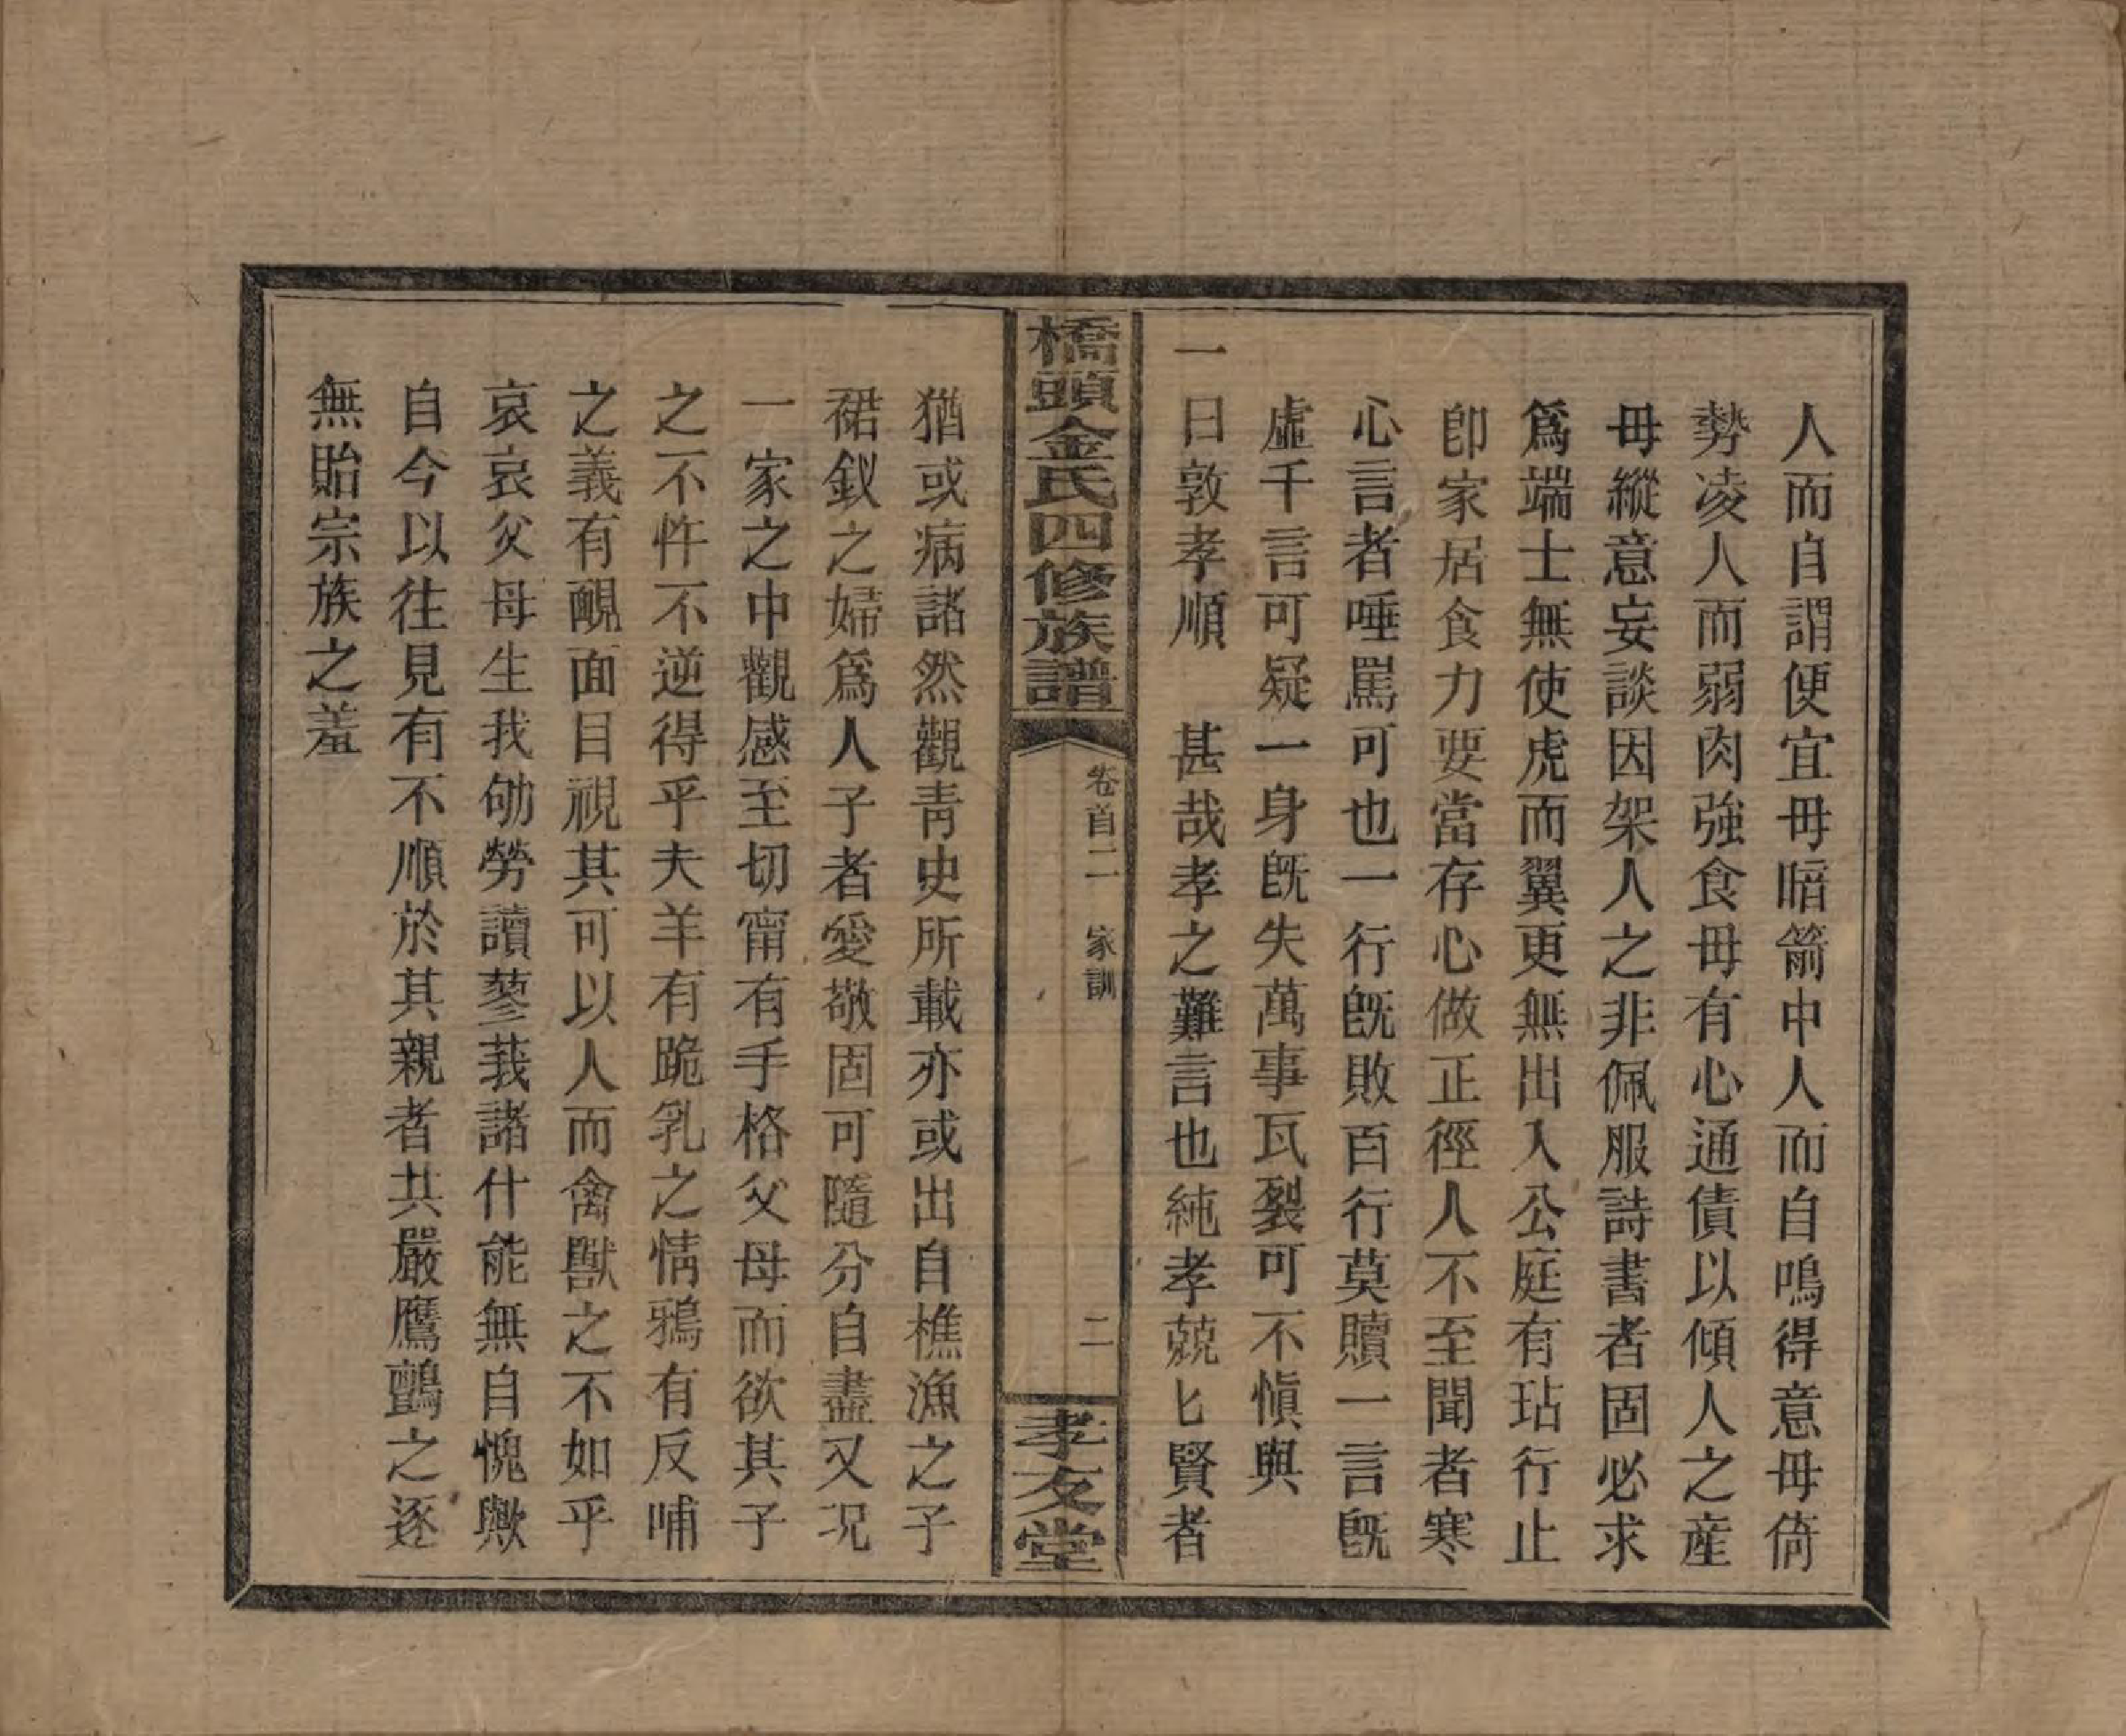 人而自謂便宜毋暗箭中人而自鳴得意毋倚
勢凌人而弱肉強食毋有心通債以傾人之産
毋縱意妄談因架人之非佩服詩書者固必求
爲端士無使虎而翼更無出入公庭有玷行止
卽家居食力要當存心做正徑人不至聞者寒
心言者唾罵可也一行旣敗百行莫贖一言旣
虛千言可疑一身旣失萬事瓦裂可不愼與
一曰敦孝順　甚哉孝之難言也純孝兢匕賢者
橋頭金氏四修族譜
卷首二　家訓
二
孝友堂
猶或病諸然觀靑史所載亦或出自樵漁之子
裙釵之婦爲人子者愛敬固可隨分自盡又况
一家之中觀感至切甯有手格父母而欲其子
之不忤不逆得乎夫羊有跪乳之情鴉有反哺
之義有靦面目視其可以人而禽獸之不如乎
哀哀父母生我劬勞讀蓼莪諸什能無自愧歟
自今以往見有不順於其親者共嚴鷹鸇之逐
無貽宗族之羞